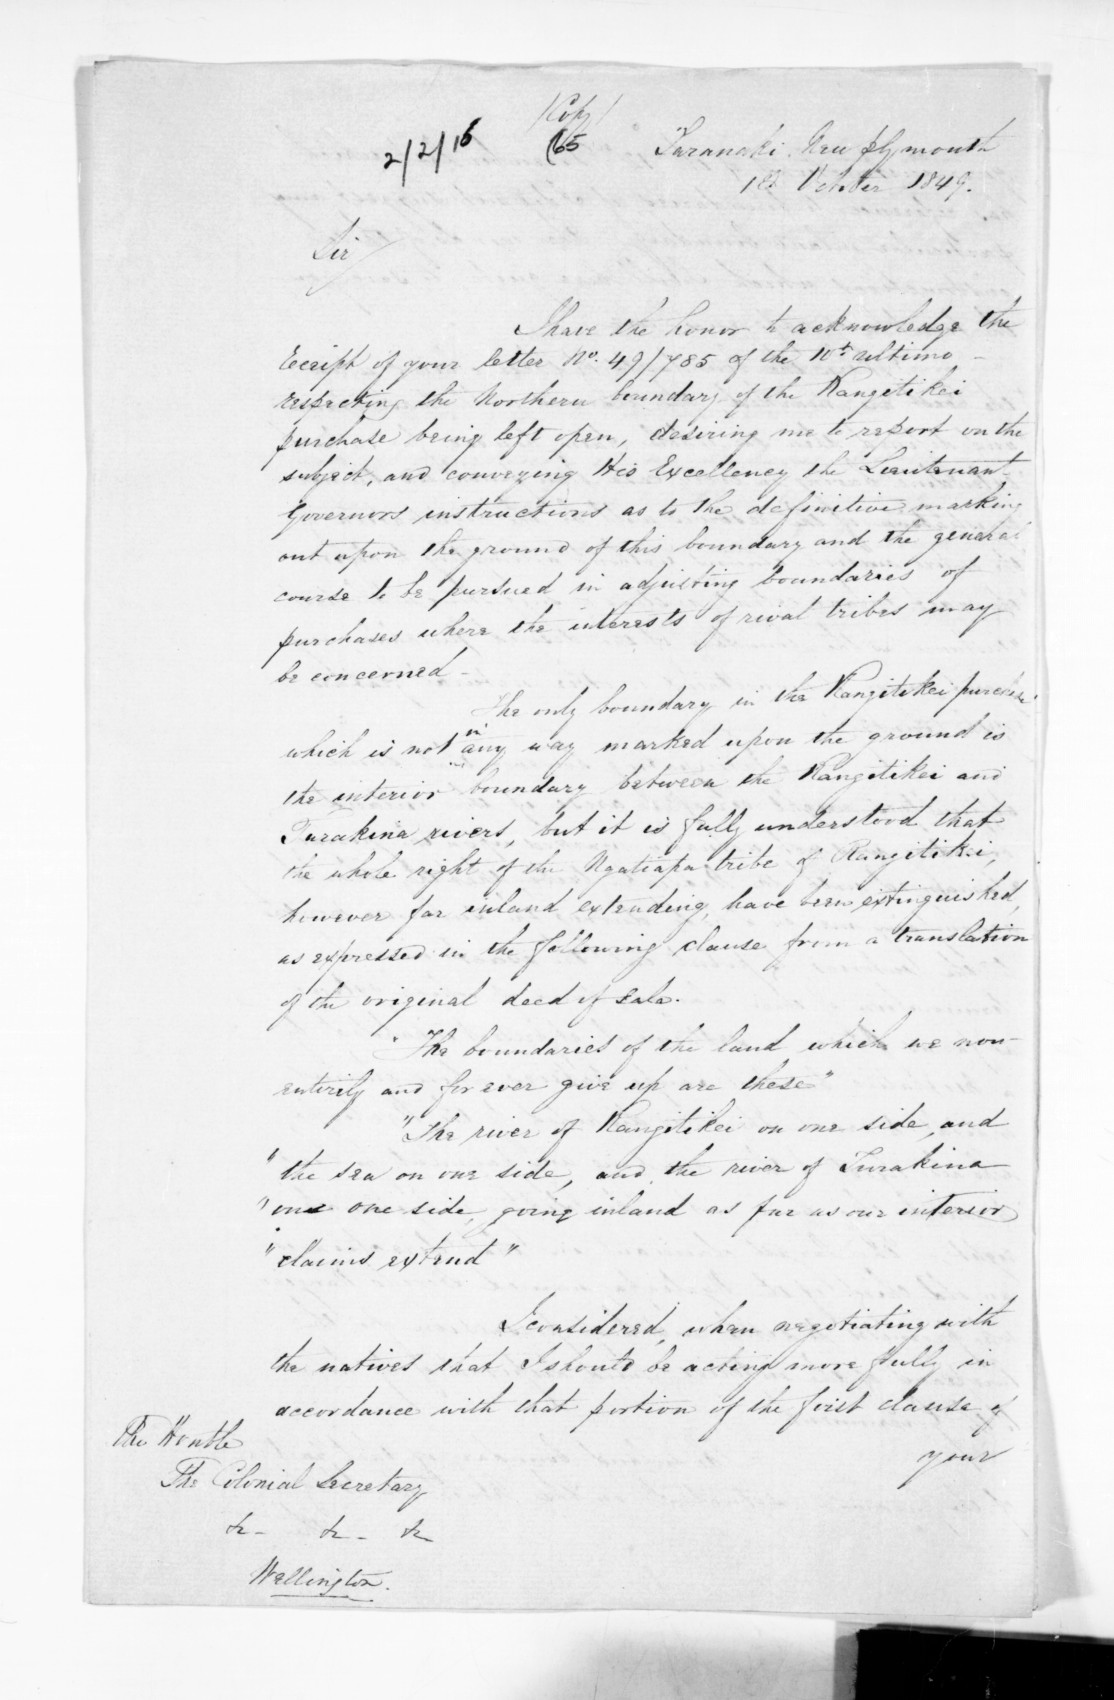 /Copy/
2/2/16
(65
Taranaki, New Plymouth
1st October 1849.
Sir/
I have the honor to acknowledge the
receipt of your letter No. 49/785 of the 10th ultimo -
respecting the Northern boundary of the Rangitikei
purchase being left open, desiring me to report on the
subject, and conveying His Excellency the Lieutenant
Governors instructions as to the definitive marking
out upon the ground of this boundary and the general
course to be pursued in adjusting boundaries of
purchases where the interests of rival tribes may
be concerned -
The only boundary in the Rangitikei purchase
which is not in any way marked upon the ground is
the interior boundary between the Rangitikei and
Turakina rivers, but it is fully understood that
the whole right of the Ngatiapa tribe of Rangitikei,
however far inland extending, have been extinguished,
as expressed in the following clause from a translation
of the original deed of sale.
"The boundaries of the land which we now
entirely and for ever give up are these"
"The river of Rangitikei on one side, and
"the sea on one side, and the river of Turakina
"one one side, going inland as far as our interior
"claims extend"
I considered, when negotiating with
the natives that I should be acting more fully in
accordance with that portion of the first clause of
your
The Honble
The Colonial Secretary
&- &- &
Wellington.